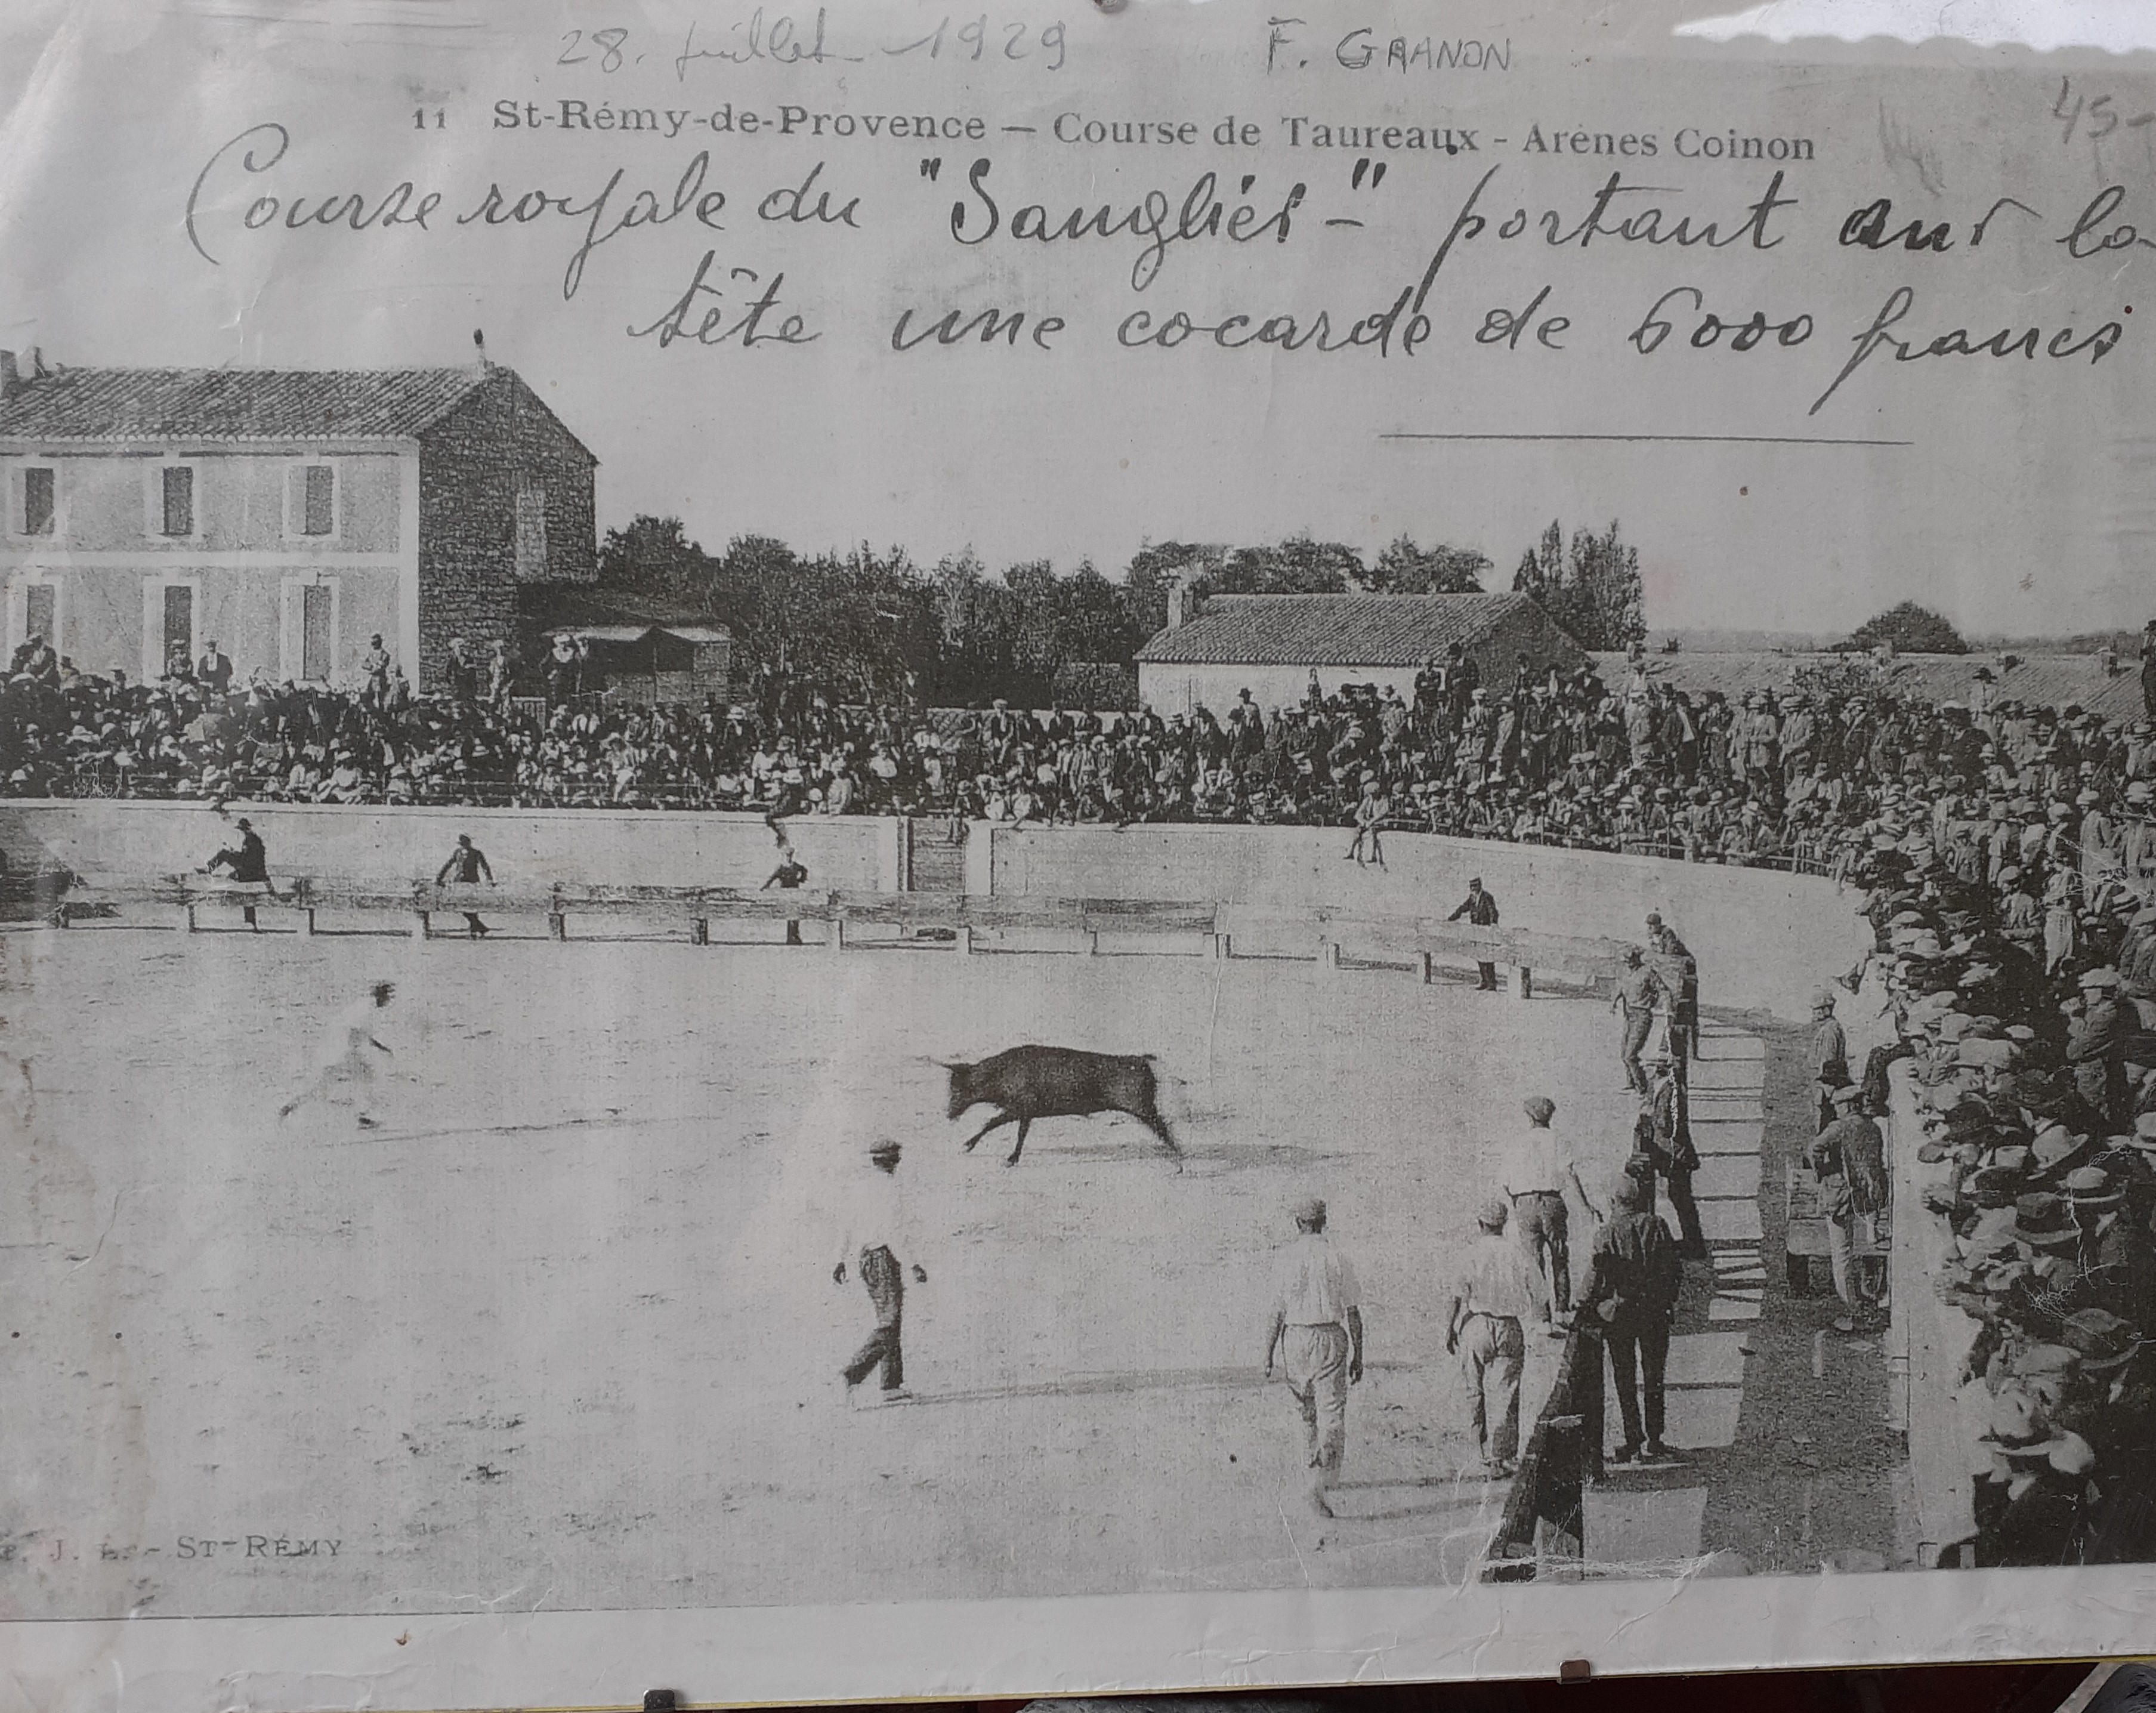 28. juillet 1929 F. GRANON
45-
11 St-Rémy-de-Provence — Course de Taureaux - Arènes Coinon
Course royale du "Sanglier" portant sur la
tête une cocarde de 6000 francs
J. L. - ST-RÉMY